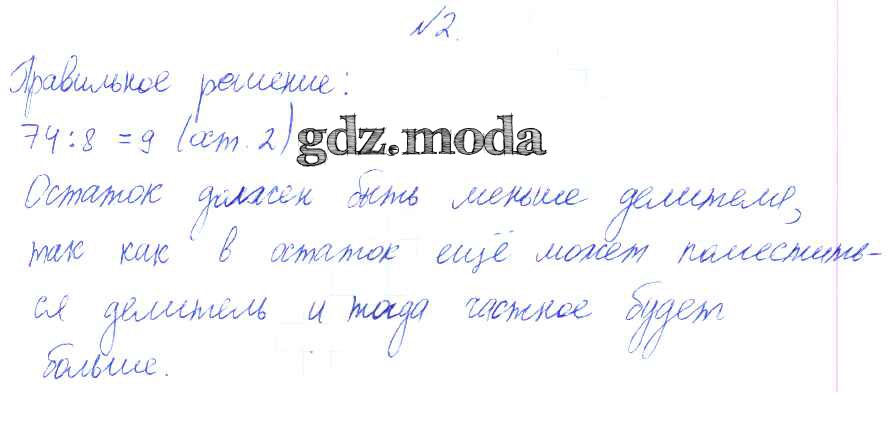 №2.
Правильное решение:
74:8 = 9 (ост. 2) gdz.moda
Остаток должен быть меньше делителя,
так как в остаток ещё может поместить-
ся делитель и тогда частное будет
больше.